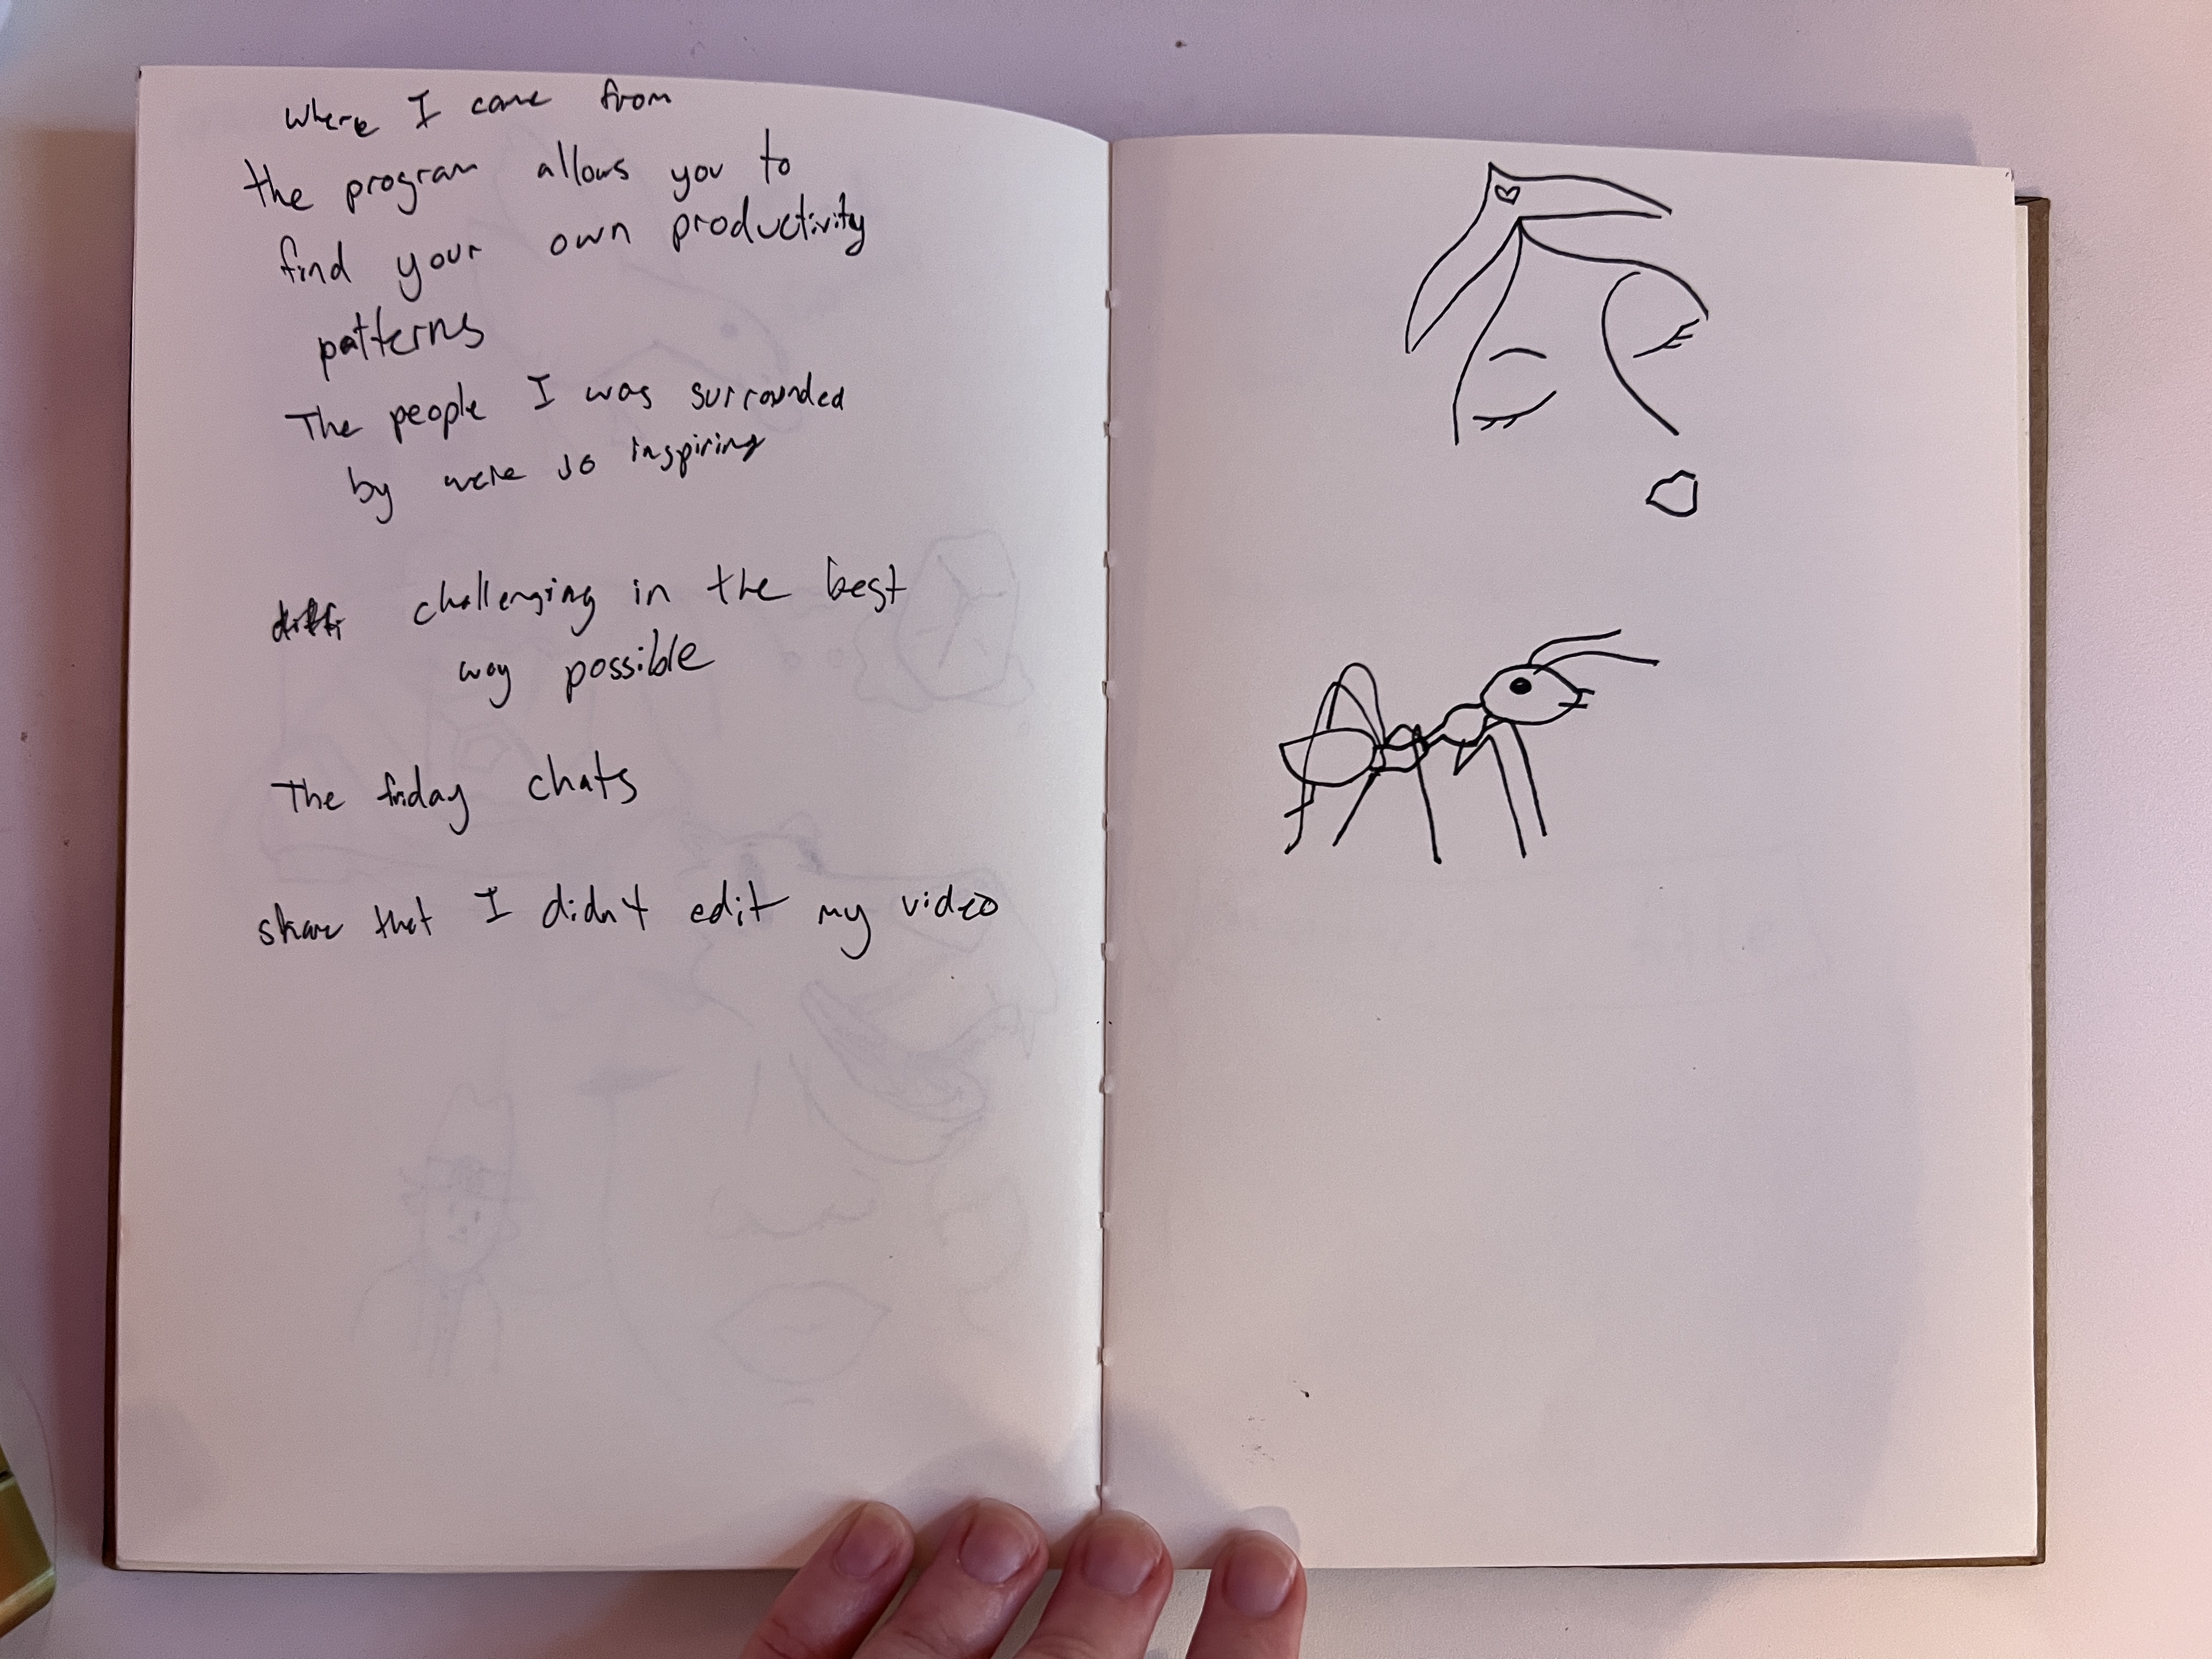 where I came from
the program allows you to
find your own productivity
patterns
The people I was surrounded
by were so inspiring
diffi challenging in the best
way possible
The friday chats
share that I didn't edit my video